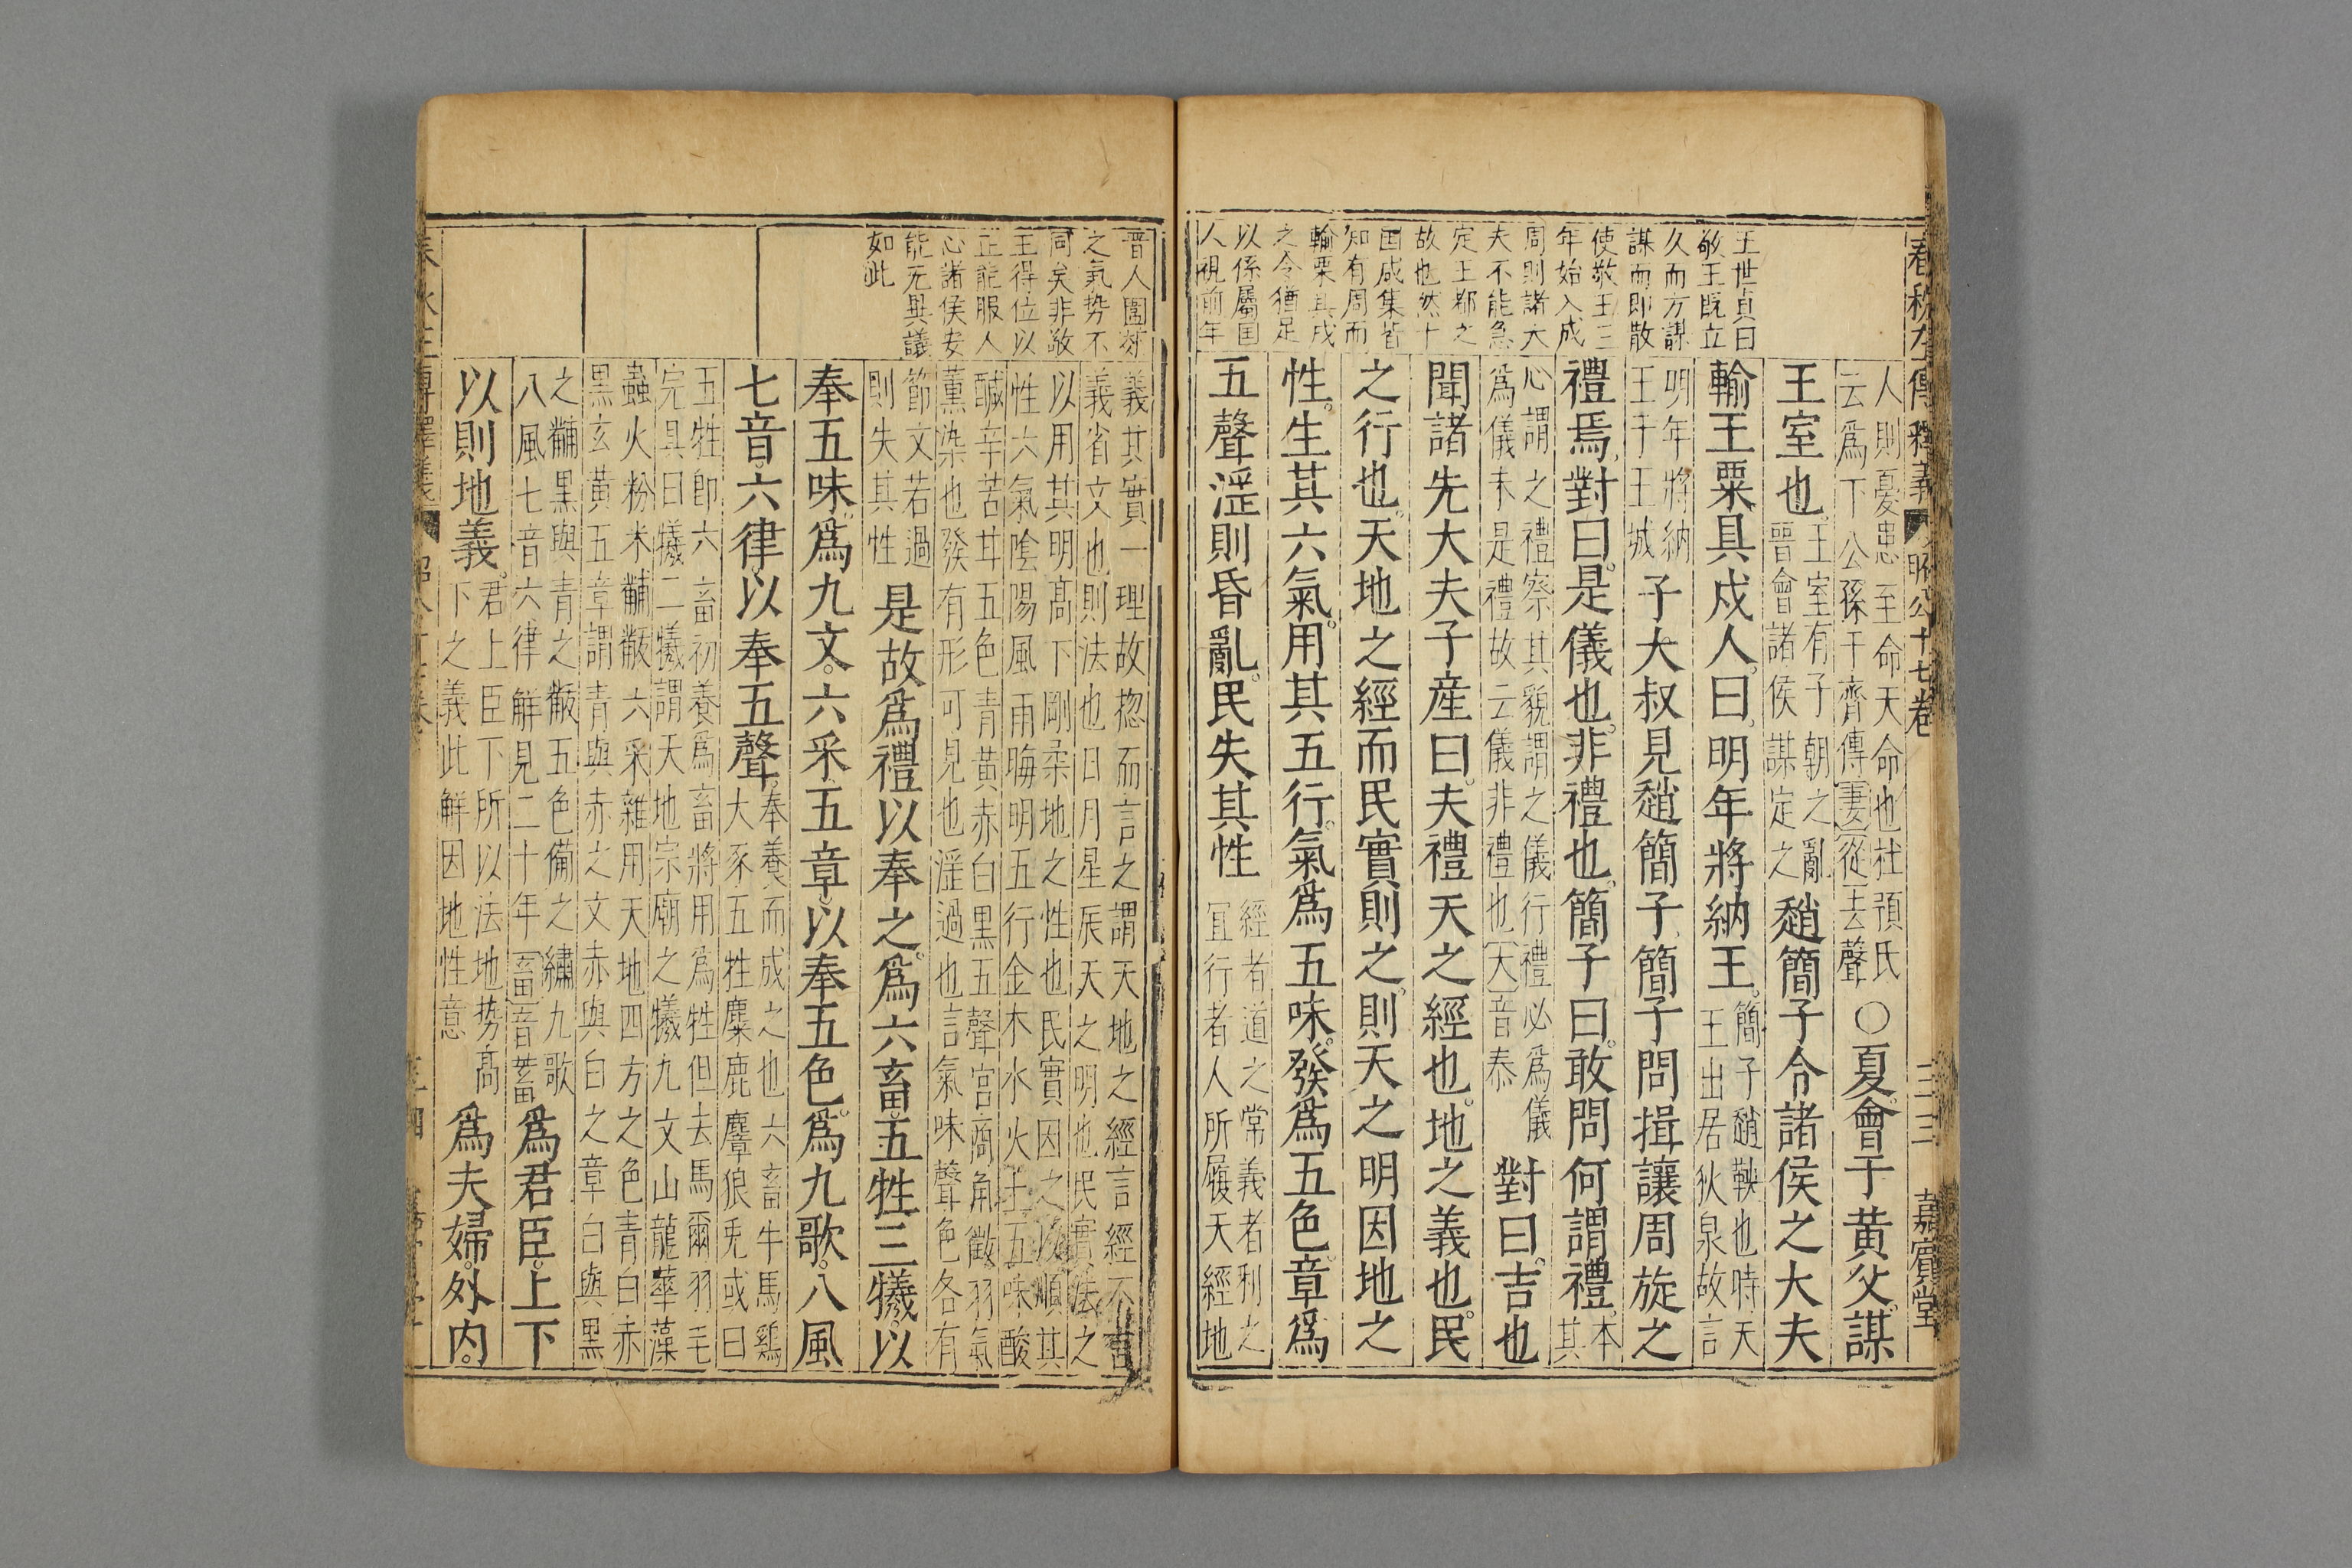 春秋左傳釋義
昭公十七卷
三三
嘉賓堂
王世貞曰
敬王既立
久而方謀
謀而即散
使敬王三
年始入成
周則諸大
夫不能急
定王都之
故也然十
国咸集皆
知有周而
輸粟具戍
之令猶足
以係屬国
人視前年
人則憂患至命天命也杜預氏
云爲下公孫于齊傳妻從去聲
○夏會于黃父謀
王室也
王室有子朝之亂
晉會諸侯謀定之
趙簡子令諸侯之大夫
輸王粟具戍人曰明年將納王
簡子趙鞅也時天
王出居狄泉故言
明年將納
王于王城
子大叔見趙簡子簡子問揖讓周旋之
禮焉對曰是儀也非禮也簡子曰敢問何謂禮
本
其
心謂之禮察其貌謂之儀行禮必爲儀
爲儀未是禮故云儀非禮也大音泰
對曰吉也
聞諸先大夫子産曰夫禮天之經也地之義也民
之行也天地之經而民實則之則天之明因地之
性生其六氣用其五行氣爲五味發爲五色章爲
五聲淫則昏亂民失其性
經者道之常義者利之
冝行者人所履天經地
晉人圍郊
之氣势不
同矣非敬
王得位以
正能服人
心諸侯安
能无異議
如此
義其實一理故揔而言之謂天地之經言經不言
義省文也則法也日月星辰天之明也民實法之
以用其明高下剛柔地之性也民實因之以順其
性六氣陰陽風雨晦明五行金木水火土五味酸
醎辛苦甘五色青黃赤白黑五聲宮商角徵羽氣
薰染也發有形可見也淫過也言氣味聲色各有
節文若過
則失其性
是故爲禮以奉之爲六畜五牲三犧以
奉五味爲九文六采五章以奉五色爲九歌八風
七音六律以奉五聲
奉養而成之也六畜牛馬鷄
大豕五牲麋鹿麞狼兎或曰
五牲即六畜初養爲畜將用爲牲但去馬爾羽毛
完具曰犧二犧謂天地宗廟之犧九文山龍華藻
蟲火粉米黼黻六采雜用天地四方之色青白赤
黒玄黃五章謂青與赤之文赤與白之章白與黒
之黼黒與青之黻五色備之繡九歌
八風七音六律解見二十年畜音蓄
爲君臣上下
以則地義
君上臣下所以法地势高
下之義此解因地性意
爲夫婦外内